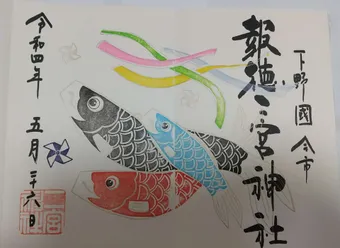 下野國 今市
報徳二宮神社
令和四年 五月二十六日